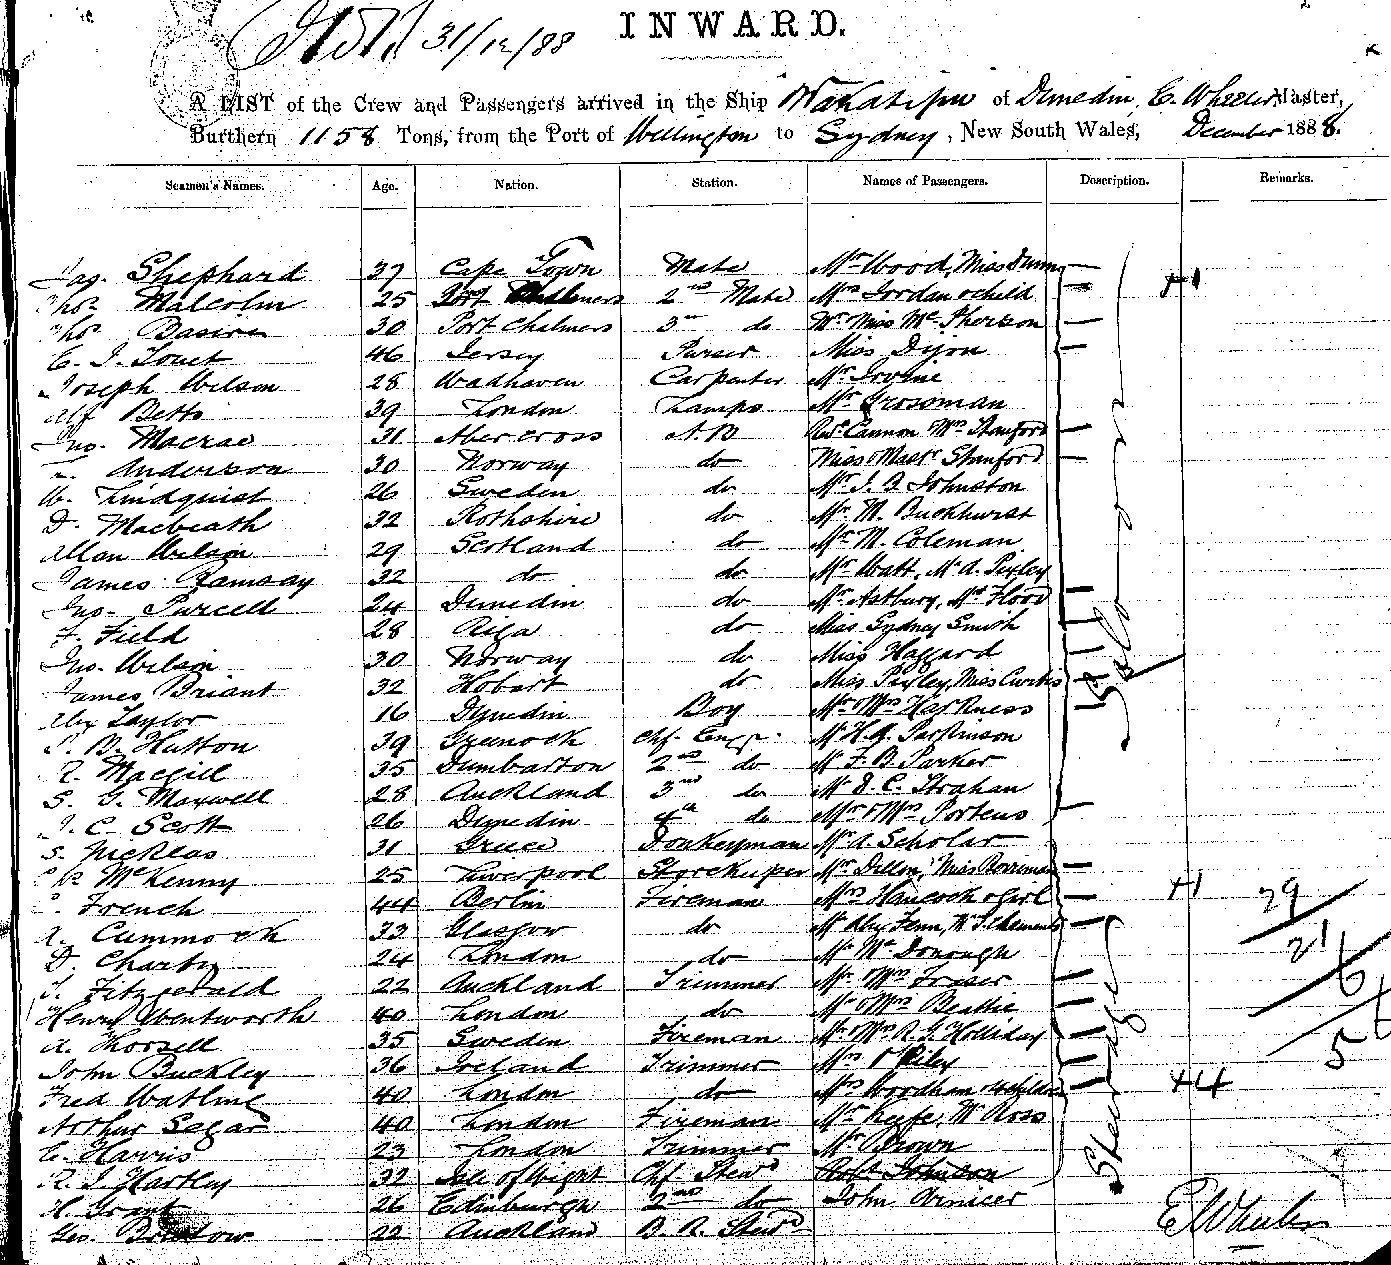 31/12/88 INWARD.
A LIST of the Crew and Passengers arrived in the Ship Wakatipu of Dunedin, E. Wheeler Master,
Burthern 1158 Tons, from the Port of Wellington to Sydney, New South Wales, December 1888.
Seamen's Names. Age. Nation. Station. Names of Passengers. Description. Remarks.
Jas. Shephard 37 Cape Town Mate Mr Wood, Miss Dunn
Thos Malcolm 25 Port Chalmers 2nd Mate Mrs Jordan & child +1
Thos Basire 30 Port Chalmers 3rd do Mr Miss McPherson
C. J. Touet 46 Jersey Purser Miss Dijon
Joseph Wilson 28 Wadhaven Carpenter Mr Irvine
Alf Betts 39 London Lamps Mr Grossman
Jno. Macrae 31 Abercross A.B Revd Cannon Mrs Stanford
Anderson 30 Norway do Miss Mastr Stanford
W. Lindquist 26 Sweden do Mr J. B Johnston
D. Macbeath 32 Rothshire do Mr M. Buckhurst
Allan Wilson 29 Scotland do Mr M. Coleman
James Ramsay 32 do do Mr Watt, Mr A. Pixley
Jno. Purcell 24 Dunedin do Mr Astbury, Mr Flood
F. Field 28 Riga do Miss Sydney Smith
Jno. Wilson 30 Norway do Miss Haggard
James Briant 32 Hobart do Miss Pixley, Miss Curtis
Alex Taylor 16 Dunedin Boy Mr & Mrs Harkness
P. B. Hutton 39 Greenock Chf. Engr. Mr H. A. Parkinson
R. Macgill 35 Dumbarton 2nd do Mr F. B. Parker
S. G. Maxwell 28 Auckland 3rd do Mr D. C. Strahan
J. C. Scott 26 Dunedin 4th do Mr & Mrs Porteus
S. Nicklas 31 Greece Donkeyman Mr A. Scholar
McKenny 25 Liverpool Storekeeper Mr Dillon, Miss
French 44 Berlin Fireman Mrs Hancock & Girl +1 29
A. Cummock 33 Glasgow do Mr Alex Fenn, Mr J. Clements 21
D. Charby 24 London do Mr McDonough 6
T. Fitzgerald 22 Auckland Trimmer Mr & Mrs Fraser
Henry Wentworth 40 London do Mr & Mrs Beattie
A. Thorsell 35 Sweden Fireman Mr & Mrs R. G. Holliday
John Buckley 36 Ireland Trimmer Mrs Riley
Fred Watling 40 London do Mrs Woodham & 4 children +4
Arthur Segar 40 London Fireman Mr Keefe, Mr Ross
C. Harris 23 London Trimmer Mr Brown
R. J Hartley 32 Isle of Wight Chf. Stewd Robt Johnson
H. Grant 26 Edinburgh 2nd do John
Geo. Bristow 22 Auckland B. R. Stewd
Saloon
Steerage
E Wheeler